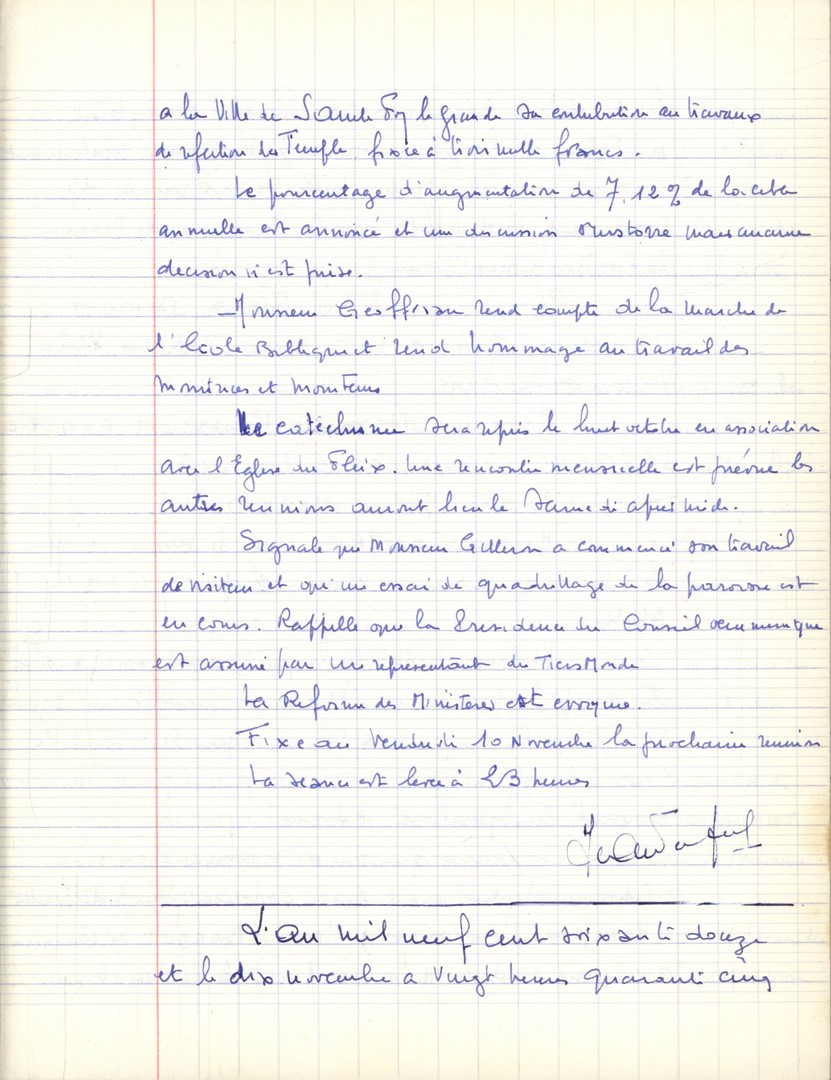 a la Ville de Sainte Foy la Grande sa contribution au travaux
de refection du Temple, fixée à trois mille francs.
Le pourcentage d'augmentation de 7,12 % de la cible
annuelle est annoncé et une discussion mais aucune
decision n'est prise.
Monsieur rend compte de la marche de
l'école Biblique et rend hommage au travail des
monitrices et moniteurs
Le catéchisme sera repris le huit octobre en association
avec l'Eglise du Fleix. Une rencontre mensuelle est prévue les
autres reunions auront lieu le Samedi après midi.
Signale que Monsieur a commencé son travail
de visiteur et qu'un essai de quadrillage de la paroisse est
en cours. Rappelle que la Presidence du Conseil oecumenique
est assumé par un representant du Tiers Monde
La Reforme des Ministeres est evoquée.
Fixe au Vendredi 10 Novembre la prochaine reunion
La seance est levée à 23 heures
L'an mil neuf cent soixante douze
et le dix novembre a vingt heures quarante cinq